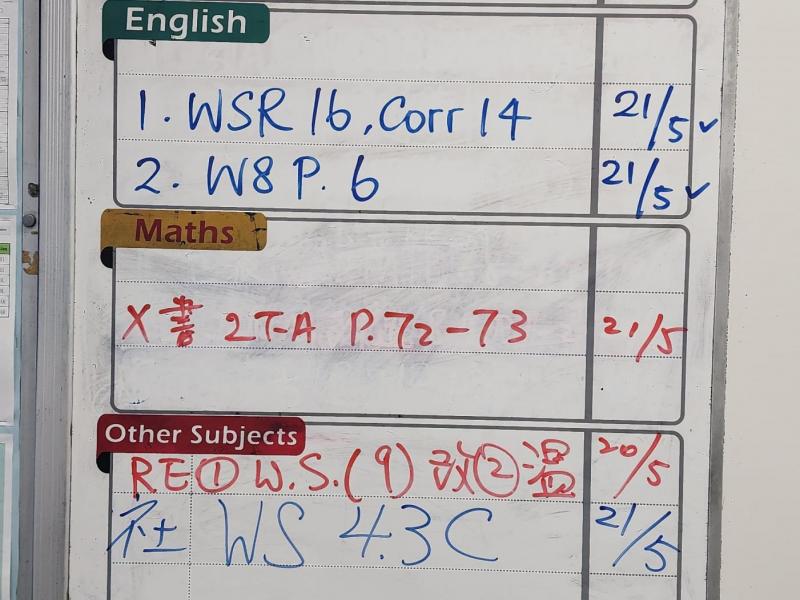 English
1. WSR 16, Corr 14 21/5 ✓
2. W8 P. 6 21/5 ✓
Maths
X 書 2T-A P.72-73 21/5
Other Subjects
RE ① W.S.(9) 改 ② 温 20/5
社 WS 4.3C 21/5